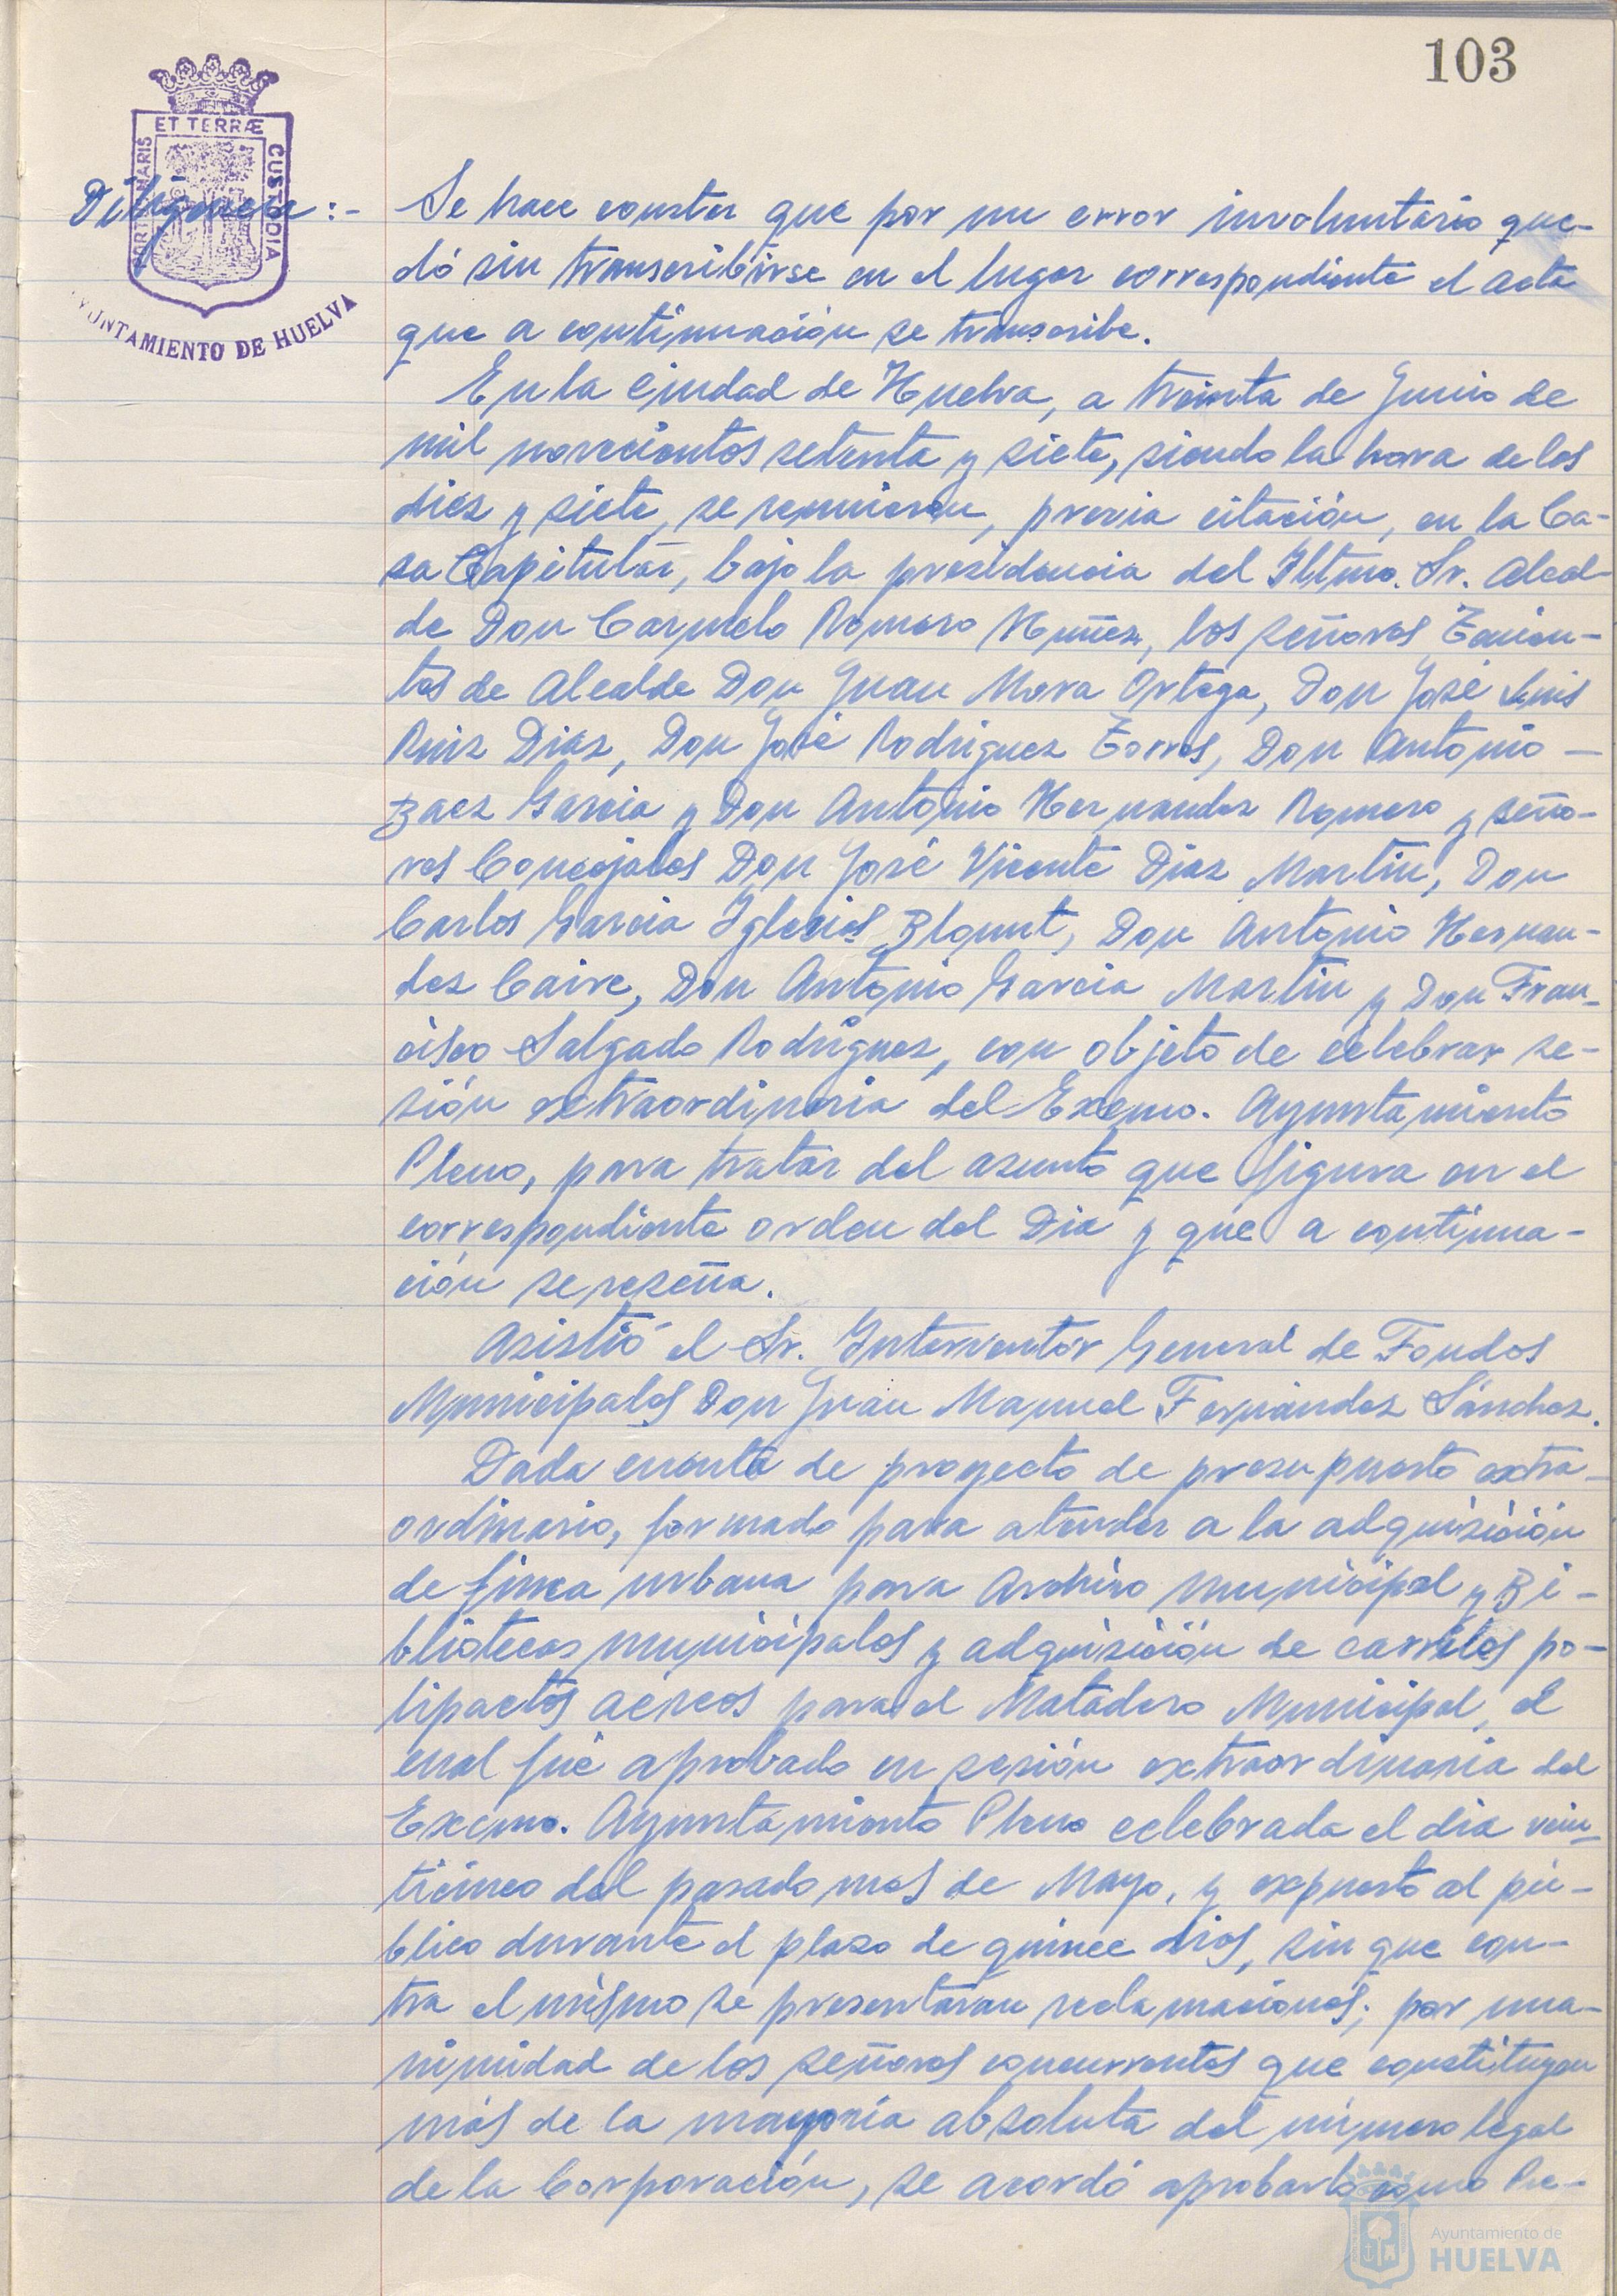 103
ET TERRÆ
PORTUS MARIS
CUSTODIA
AYUNTAMIENTO DE HUELVA
Diligencia:-
Se hace constar que por un error involuntario que-
dó sin transcribirse en el lugar correspondiente el acta
que a continuación se transcribe.
En la Ciudad de Huelva, a treinta de Junio de
mil novecientos setenta y siete, siendo la hora de las
diez y siete, se reunieron, previa citación, en la Ca-
sa Capitular, bajo la presidencia del Iltmo. Sr. Alcal-
de Don Carmelo Romero Nuñez, los señores Tenien-
tes de Alcalde Don Juan Mora Ortega, Don José Luis
Ruiz Diaz, Don José Rodriguez Torres, Don Antonio —
Baez Garcia y Don Antonio Hernandez Romero y seño-
res Concejales Don José Vicente Diaz Martin, Don
Carlos Garcia Iglesias Blount, Don Antonio Hernan-
dez Caire, Don Antonio Garcia Martin y Don Fran-
cisco Salgado Rodriguez, con objeto de celebrar se-
sión extraordinaria del Excmo. Ayuntamiento
Pleno, para tratar del asunto que figura en el
correspondiente orden del Dia y que a continua-
ción se reseña.
Asistió el Sr. Interventor General de Fondos
Municipales Don Juan Manuel Fernández Sánchez.
Dada cuenta de proyecto de presupuesto extra-
ordinario, formado para atender a la adquisición
de finca urbana para Archivo Municipal y Bi-
bliotecas municipales y adquisición de carriles po-
lipactos aéreos para el Matadero Municipal, el
cual fué aprobado en sesión extraordinaria del
Excmo. Ayuntamiento Pleno celebrada el dia vein-
ticinco del pasado mes de Mayo, y expuesto al pú-
blico durante el plazo de quince dias, sin que con-
tra el mismo se presentaran reclamaciones; por una-
nimidad de los señores concurrentes que constituyen
más de la mayoría absoluta del número legal
de la Corporación, se acordó aprobarlo como Pre-
Ayuntamiento de
HUELVA